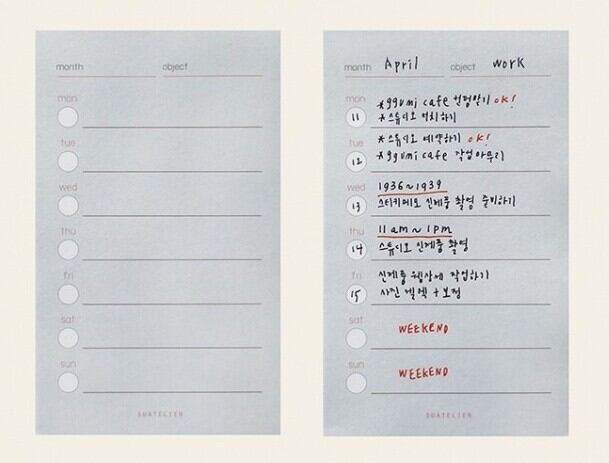 month object
mon
tue
wed
thu
fri
sat
sun
SUATELIER
month April object work
mon
11 *ggumi cafe 컨펌받기 OK!
*스튜디오 서치하기
tue
12 *스튜디오 예약하기 OK!
*ggumi cafe 작업마무리
wed
13 1936~1939
스티키메모 신제품 촬영 준비하기
thu
14 11 am ~ 1pm
스튜디오 신제품 촬영
fri
15 신제품 웹상세 작업하기
사진 셀렉 + 보정
sat
WEEKEND
sun
WEEKEND
SUATELIER